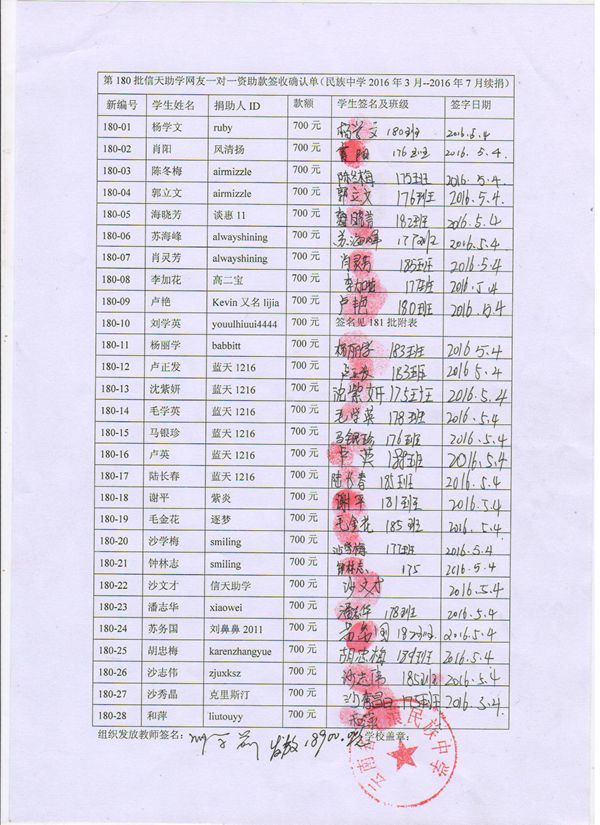 第 180 批信天助学网友一对一资助款签收确认单（民族中学 2016 年 3 月--2016 年 7 月续捐）
新编号 学生姓名 捐助人 ID 款额 学生签名及班级 签字日期
180-01 杨学文 ruby 700 元 杨学文 180班 2016.5.4
180-02 肖阳 风清扬 700 元 肖阳 176班 2016.5.4
180-03 陈冬梅 airmizzle 700 元 陈冬梅 175班 2016.5.4
180-04 郭立文 airmizzle 700 元 郭立文 176班 2016.5.4
180-05 海晓芳 谈惠 11 700 元 182班 2016.5.4
180-06 苏海峰 alwayshining 700 元 苏海峰 177班 2016.5.4
180-07 肖灵芳 alwayshining 700 元 肖灵芳 185班 2016.5.4
180-08 李加花 高二宝 700 元 李加花 2016.5.4
180-09 卢艳 Kevin 又名 lijia 700 元 卢艳 180班 2016.5.4
180-10 刘学英 youulhiuui4444 700 元 签名见 181 批附表
180-11 杨丽学 babbitt 700 元 杨丽学 183班 2016.5.4
180-12 卢正发 蓝天 1216 700 元 卢正发 183班 2016.5.4
180-13 沈紫妍 蓝天 1216 700 元 沈紫妍 175班 2016.5.4
180-14 毛学英 蓝天 1216 700 元 毛学英 178班 2016.5.4
180-15 马银珍 蓝天 1216 700 元 马银珍 176班 2016.5.4
180-16 卢英 蓝天 1216 700 元 卢英 188班 2016.5.4
180-17 陆长春 蓝天 1216 700 元 陆长春 185班 2016.5.4
180-18 谢平 紫炎 700 元 谢平 181班 2016.5.4
180-19 毛金花 逐梦 700 元 毛金花 185班 2016.5.4
180-20 沙学梅 smiling 700 元 沙学梅 177班 2016.5.4
180-21 钟林志 smiling 700 元 钟林志 175 2016.5.4
180-22 沙文才 信天助学 700 元 沙文才 2016.5.4
180-23 潘志华 xiaowei 700 元 潘志华 178班 2016.5.4
180-24 苏务国 刘鼻鼻 2011 700 元 苏务国 2016.5.4
180-25 胡忠梅 karenzhangyue 700 元 胡忠梅 184班 2016.5.4
180-26 沙志伟 zjuxksz 700 元 沙志伟 185班 2016.5.4
180-27 沙秀晶 克里斯汀 700 元 沙秀晶 175班 2016.5.4
180-28 和萍 liutouyy 700 元 和萍
组织发放教师签名： 发放18900.0元 学校盖章：
民族中学